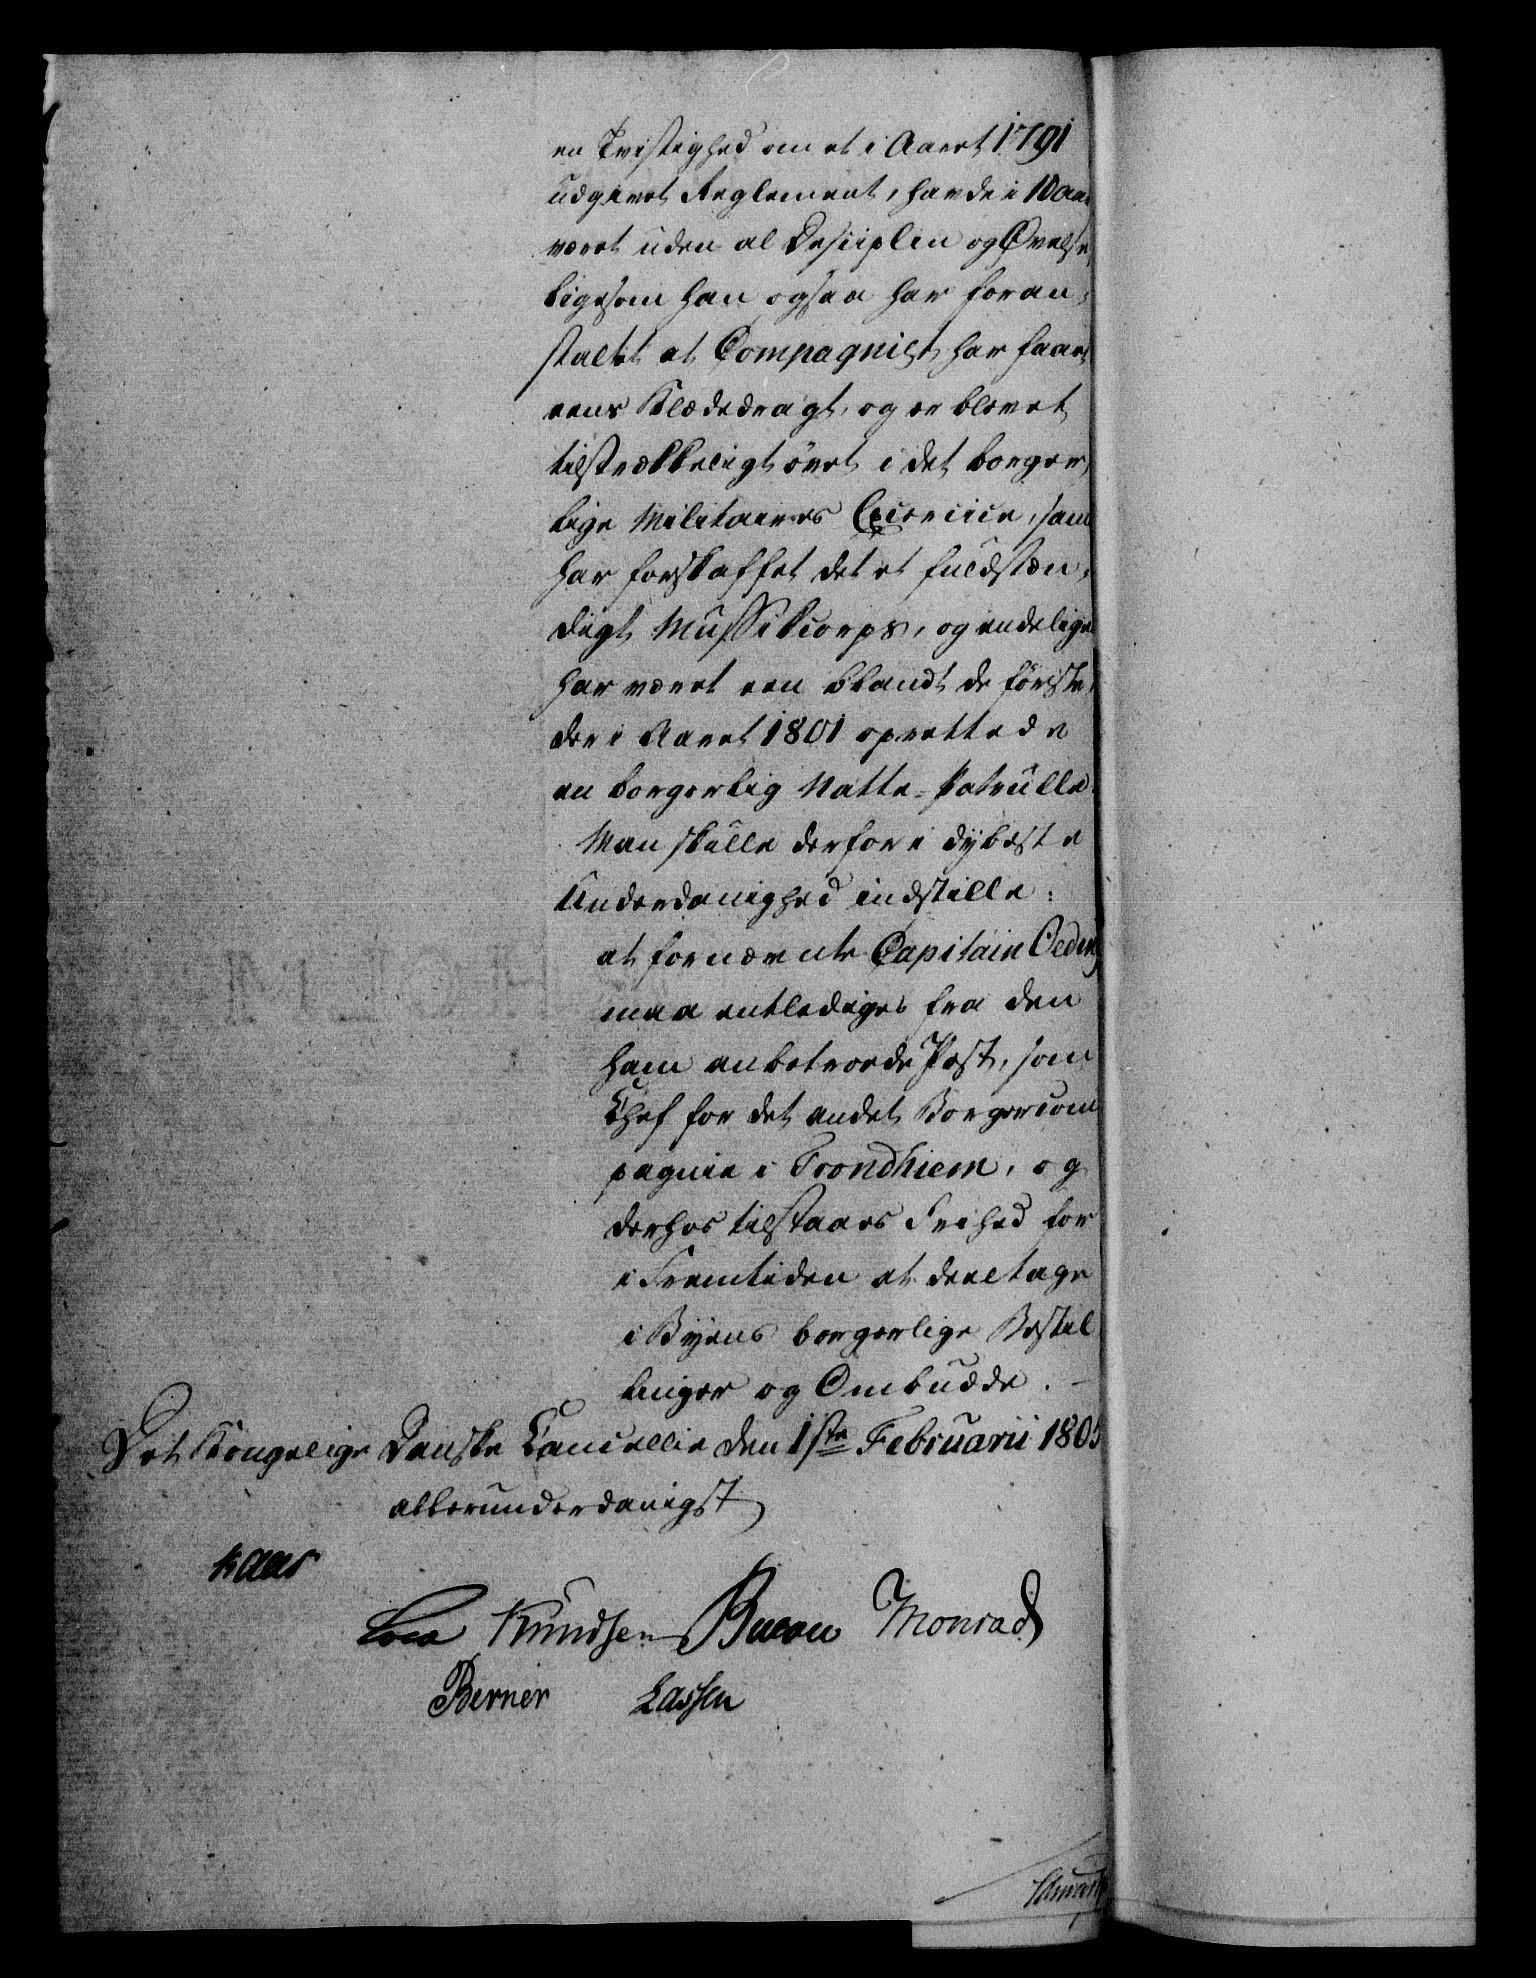 en Tvistighed om et i Aaret 1791
udgivet Reglement, havde i 10 Aar
været uden al Desiiplin og Øvelse,
ligesom han ogsaa har foran-
staltet at Compagniet har faaet
eens Klædedragt, og er blevet
tilstrækkeligt övet i det borger,
lige Militaires Exercice, samt
har forskaffet det et fuldstæn,
digt Mussikcorps, og endelige
har været een blandt de förste,
der i Aaret 1801 oprettede
en borgerlig Natte-Patrulle.
Man skulle derfore i dybeste
Underdanighed indstille:
at fornævnte Capitain
maa entlediges fra den
ham anbetroede Post, som
Chef for det andet Borgercom
pagnie i Trondhiem, og
derhos tilstaaes Frihed for
i Fremtiden at deeltage
i Byens borgerlige Bestil
linger og Ombudde. -
Det Kongelige Danske Cancellie den 1ste Februarii 1805
allerunderdanigst
Kaas
Knudsen Bülow Monrad
Berner Lassen